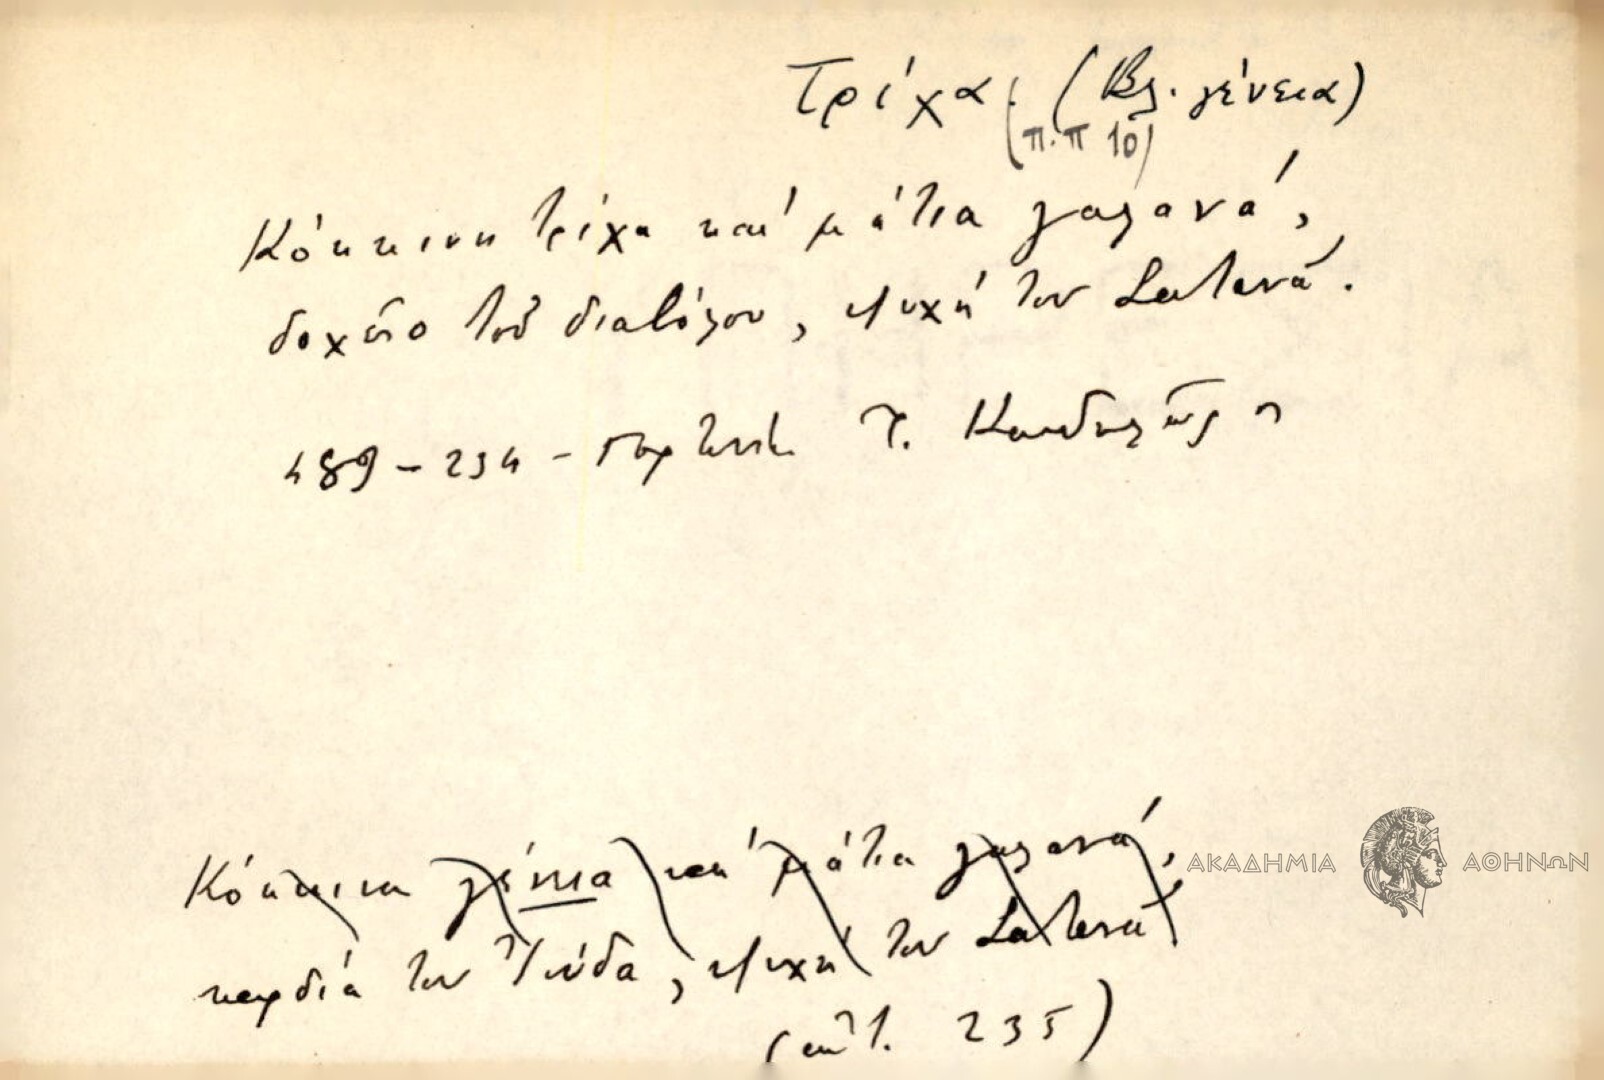 Τρίχα. (Βλ. γένεια)
(π.π 10)
Κόκκινη τρίχα καί μάτια γαλανά,
δοχεῖο τοῦ διαβόλου, ψυχή του Σατανά.
489 - 234 - Γορτυνία Τ. Κανδηλῶρος
Κόκκινα γένια και μάτια γαλανά,
καρδιά του Ἰούδα, ψυχή του Σατανά
(αὐτ. 235)
ΑΚΑΔΗΜΙΑ ΑΘΗΝΩΝ